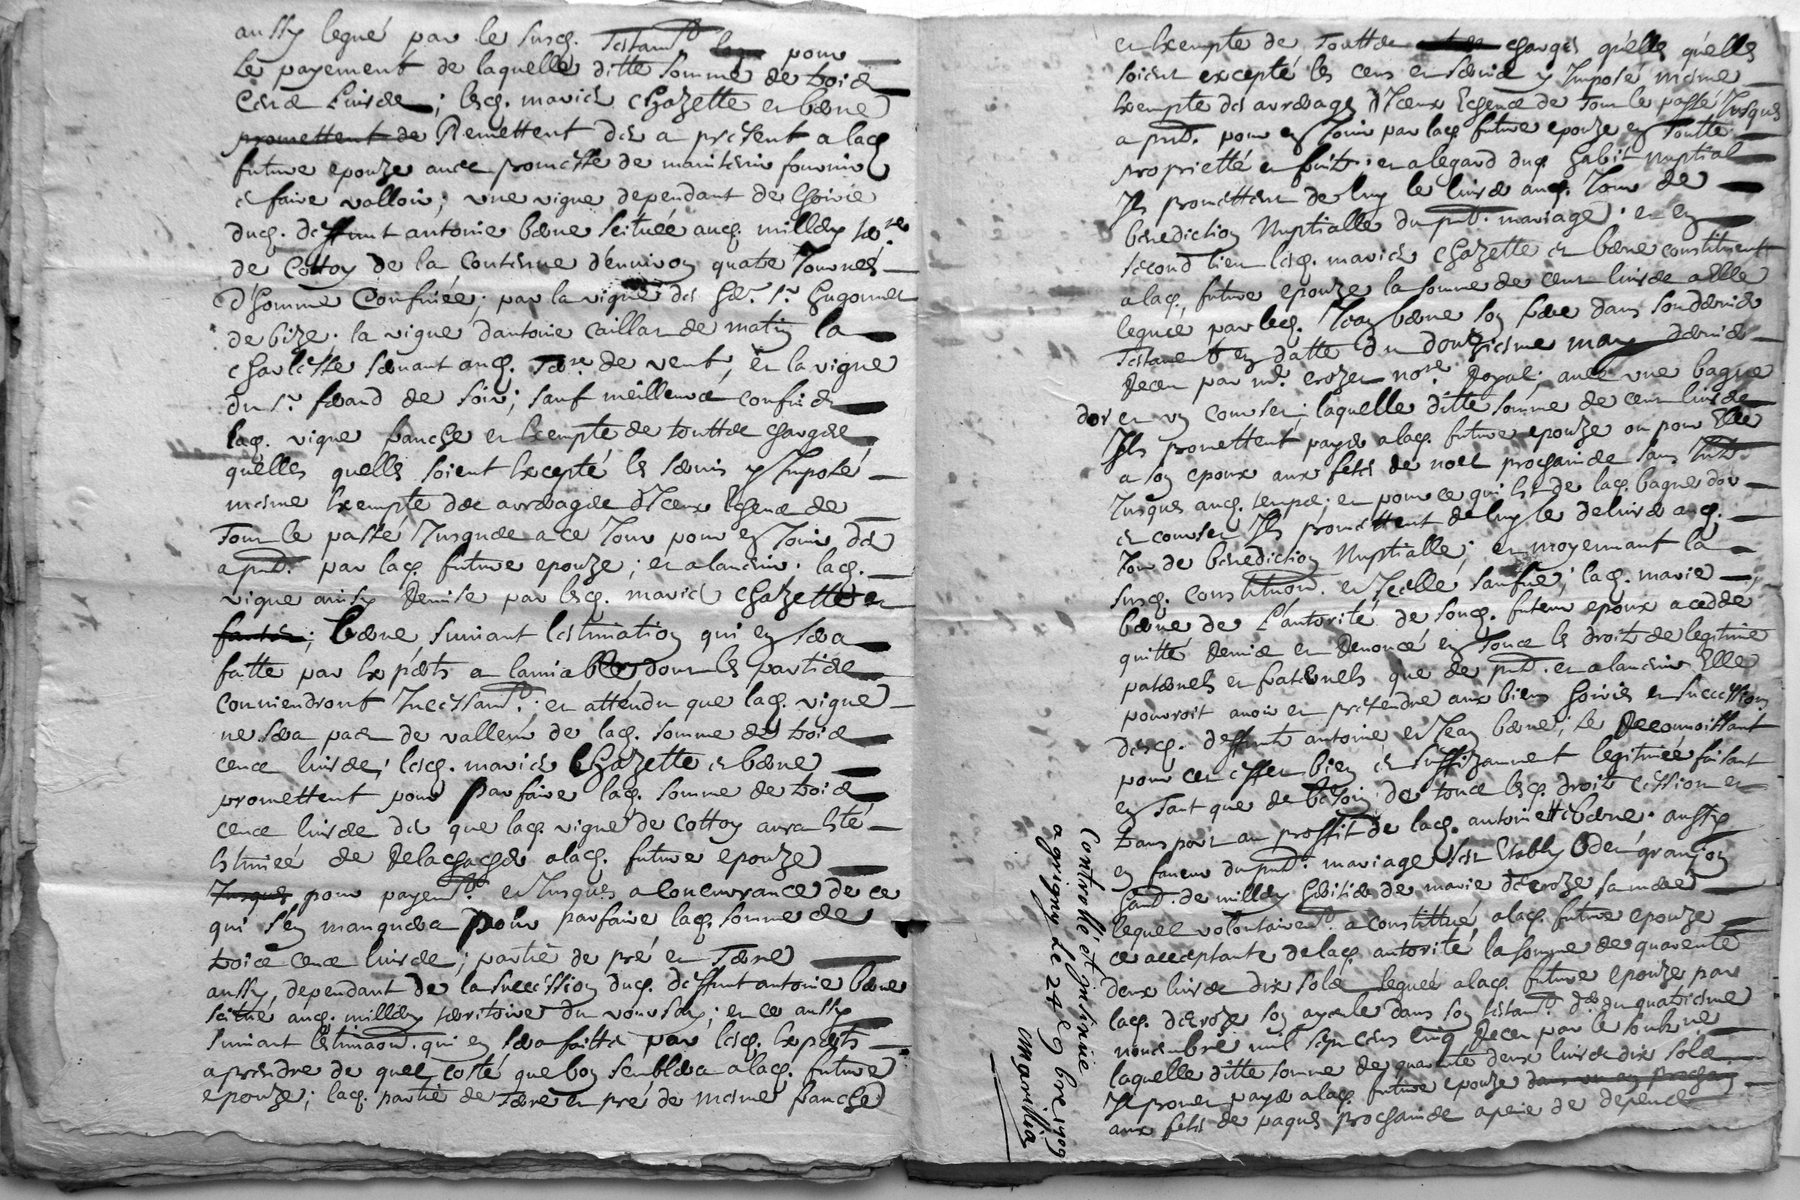 aussy legué par le susd. Testamt. laq pour
le payement de laquelle ditte somme de trois
Cens Livres; lesd. mariés Chazette et bene
promettent de Remettent dés a présent a lad
future epouze avec promesse de maintenir fournir
et faire valloir; une vigne dependant de hoirie
dud. deffunt antoine bene scituée aud. millery
de Cottoy de la Contenue d'environ quatre Journés
d'homme Confinée; par la vigne des her. Sr. hugonnet
de bize. la vigne dantoine caillat de matin la
servant aud. de vent, et la vigne
du Sr. de soir; sauf meilleurs confins
lad. vigne franche et Exempte de touttes charges
quelles quelles soient Excepté le servis y Imposé
mesme Exempte des arrerages d'Iceux Echeus de
Tout le passé Jusques a ce Jour pour en Jouir dés
a pnt. par lad. future epouze; et alavenir. lad.
vigne ainsy Remise par lesd. mariés Chazette et
bene suivant lestimation qui en sera
faitte par Experts a lamiable dont les parties
conviendront Incessamt.; et attendu que lad. vigne
ne sera pas de valleur de lad. somme de trois
cens livres; lesd. mariés Chazette et bene
promettent pour parfaire lad. somme de trois
cens livres dés que lad. vigne de Cottoy aura Esté
Estimée de Relascher alad. future epouze
Jusques pour payemt. et Jusques a Concurrance de ce
qui s'en manquera pour parfaire lad. somme de
trois cens livres; partie de pré et Terre
aussy dependant de la succession dud. deffunt antoine bene
scitue aud. millery territoire du; et ce aussy
suivant Lestimaon. qui en sera faitte par lesd. Experts
a prendre de quel costé que bon semblera alad. future
epouze; lad. partie de Terre et pré de mesme franche
et Exempte de Touttes charges quelles quelles
soient excepté les cens et servis y Imposé mesme
Exempte des arrerages d'Iceux Echeus de tout le passé Jusques
a pnt. pour en Jouir par lad. future epouze en Toutte
proprietté et fruits; et alegard dud. habit nuptial
Ils promettent de luy le livrer aud. Jour de
benediction Nuptialle du pnt. mariage; et en
second lieu lesd. mariés Chazette et bene constituent
a lad. future epouze la somme de cent livres a Elle
leguée par led. Jean bene son frere dans son dernier
Testament en datte du douziesme may dernier
Receu par me. crozet nore. Royal; avec une bague
dor et un; laquelle ditte somme de cent livres
Ils promettent payer alad. future epouze ou pour Elle
a son epoux aux festes de noel prochaines sans Intt.
Jusques aud. temps; et pour ce qui est de lad. bague dor
et Ils promettent de luy le delivrer aud.
Jour de benediction Nuptialle; et moyennant la
susd. Constitution. et Icelle sauflue; lad. marie
bene de L'autorité de sond. futeur epoux a cedde
quitté Remis et Renoncé en Tous les droits de legitime
paternels et fraternels que de pnt. et alavenir Elle
pourroit avoir et prétendre aux biens hoiries et succession
desd. deffunts antoine et Jean bene; se Reconnoissant
pour cet effet bien et suffizamment legitimée faisant
en tant que de besoin de tous lesd. droits Cession et
transport au proffit de lad. antoinette bene. aussy
en faveur du pnt. mariage s'est Etably granjon
habt. de millery heritier de marie deroze sa mere
lequel volontairemt. a constittué alad. future epouze
ce acceptante de lad. autorité la somme de quarente
deux livres dix sols leguée alad. future epouze par
lad. deroze son ayeule dans son testamt. du quatriesme
novembre mil sept cens cinq Receu par le soubsne
laquelle ditte somme de quarante deux livres dix sols
Il promet payer alad. future epouze dans un an prochain
aux festes de paques prochaines a peine de depens
Controllé et jnsinuée
a grigny Le 24e 9bre 1709
Marillia